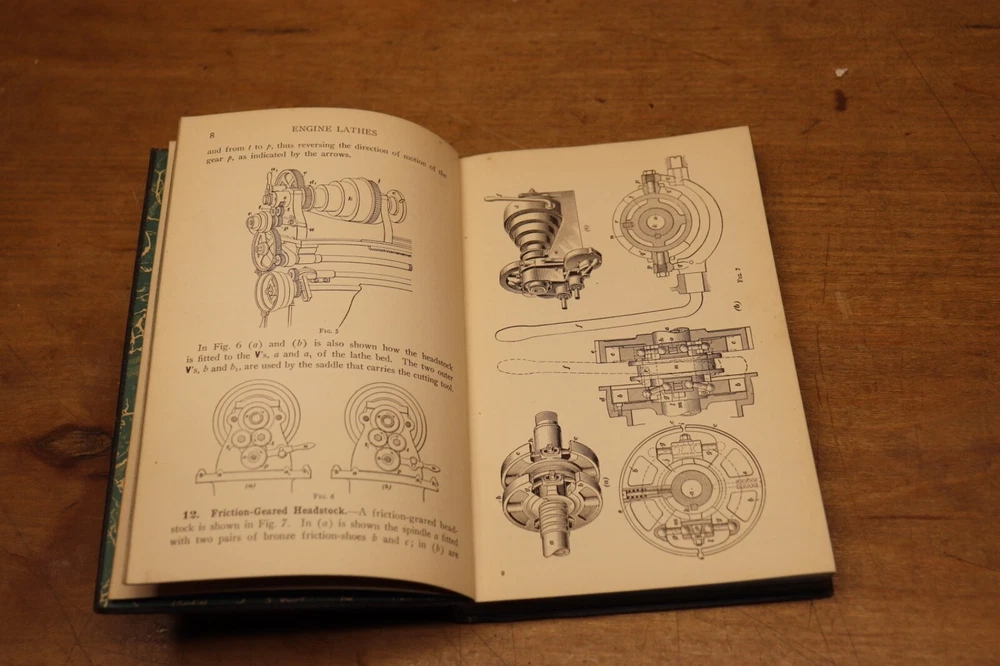 8
ENGINE LATHES
and from t to p, thus reversing the direction of motion of the
gear p, as indicated by the arrows.
FIG. 5
In Fig. 6 (a) and (b) is also shown how the headstock
is fitted to the V's, a and a₁ of the lathe bed. The two outer
V's, b and b₁, are used by the saddle that carries the cutting tool.
(a)
(b)
FIG. 6
12. Friction-Geared Headstock.—A friction-geared head-
stock is shown in Fig. 7. In (a) is shown the spindle a fitted
with two pairs of bronze friction-shoes b and c; in (b) are
(c)
(b)
FIG. 7
(a)
9